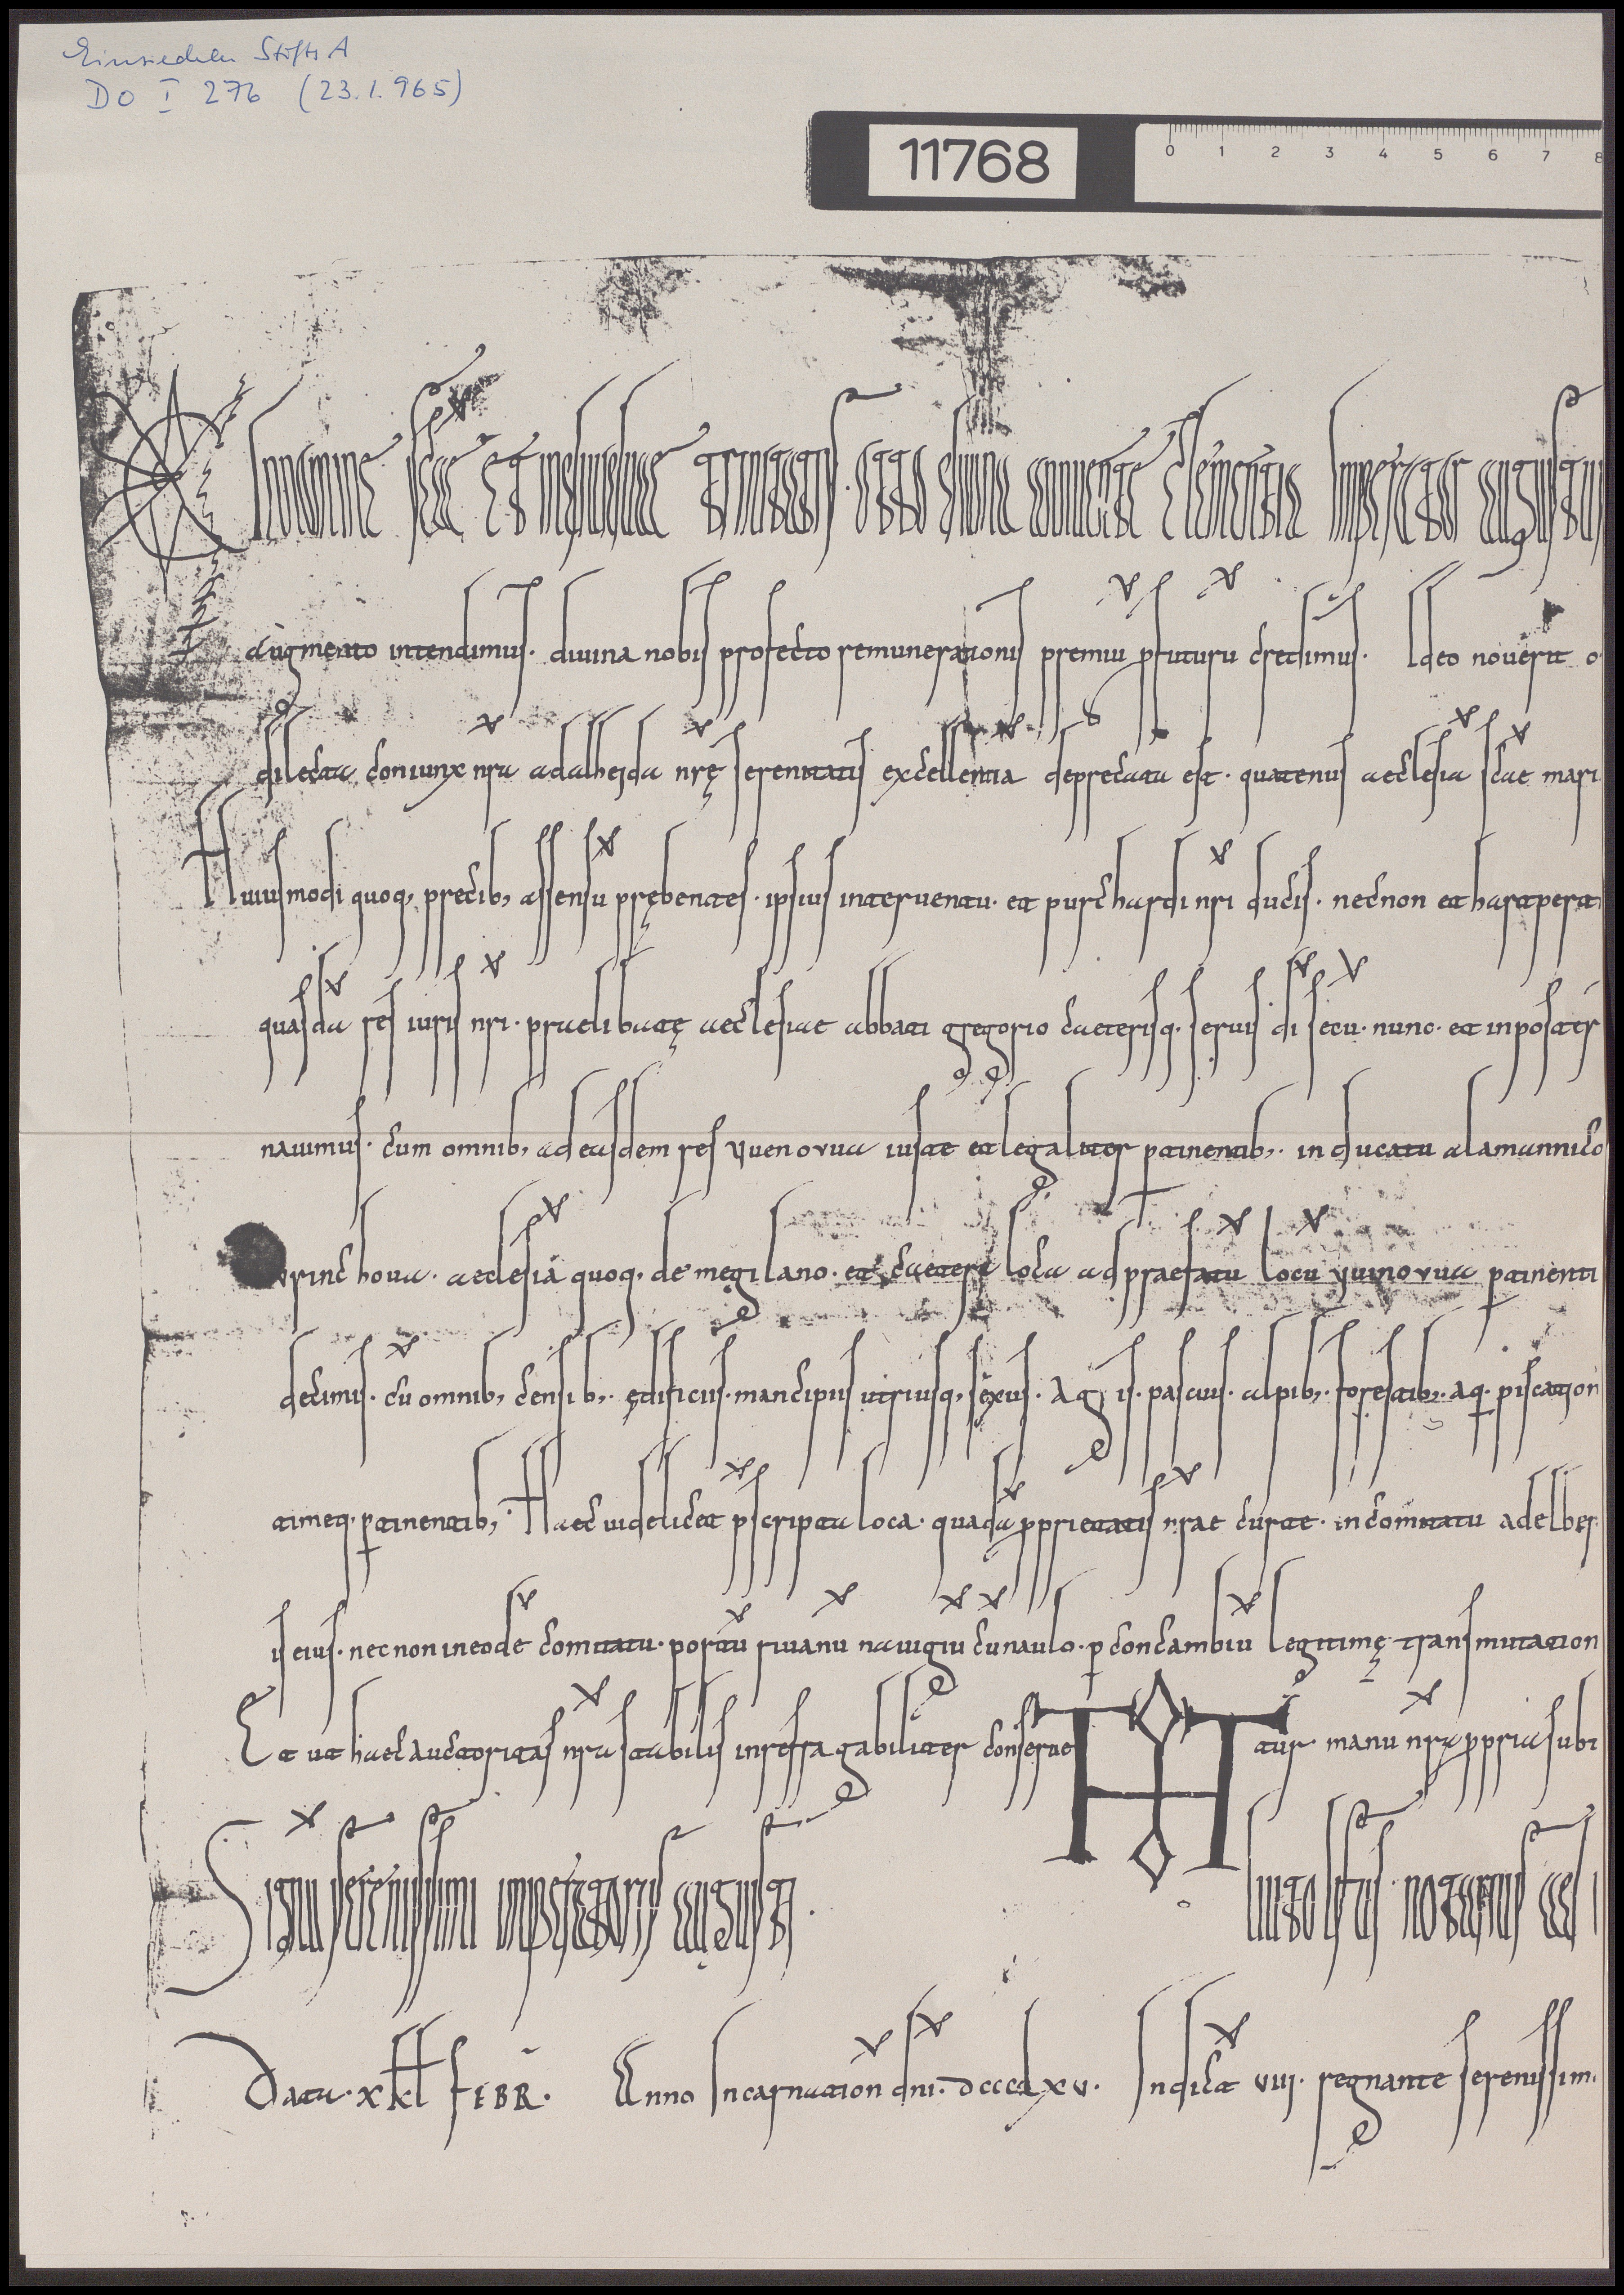 Einsiedeln StiftsA
DO I 276 (23.1.965)
11768
0 1 2 3 4 5 6 7 8
In nomine scae et individuae trinitatis. Otto divina annuente clementia Imperator augustus
augmento intendimus. divina nobis profecto remunerationis premiu pfuturu credimus. Ideo noverit o
dilecta coniunx nra adalheida nrę serenitatis excellentia deprecata est. quatenus aecclesia scae mari
Huiusmodi quoq, precib, assensu prębentes. ipsius interventu. et purchardi nri ducis. necnon et hartpert
quasda res iuris nri. praelibatę aecclesiae abbati gregorio caeterisq. servis di secu. nunc. et in poster
navimus. cum omnib, ad easdem res iuste et legaliter ptinentib,. in ducatu alamannico
aecclesiā quoq, de megilano. et caetera loca ad praefatu locu ptinenti
decimis. cu omnib, censib,. ędificiis. mancipiis utriusq, sexus. Agris. pascuis. alpib,. forestib,. aq. piscation
atimeq. ptinentib,. Haec videlicet pscripta loca. quada pprietatis nrae curte. in comitatu adelber
is eius. necnon in eode comitatu. portu rivanu navigiu cu naulo. p concambiu legitimę transmutation
Et ut haec auctoritas nra stabilis inrefragabiliter conserve tur manu nra ppria subt
Signu serenissimi imperatoris augusti.
liutolfus notarius
Data. x kl FEBR. Anno Incarnation dni. dcccclxv. Indict viii. regnante serenissim.